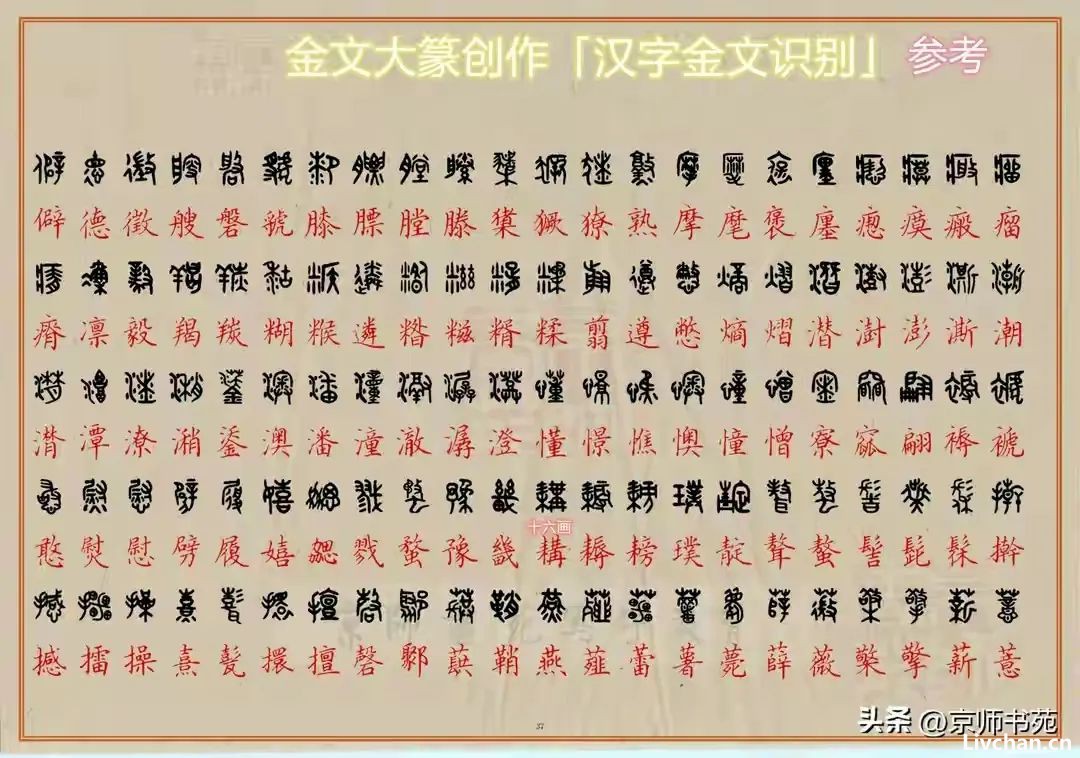 金文大篆创作「汉字金文识别」 参考
僻 德 徵 艘 磐 虢 膝 膘 膛 滕 獗 獠 熟 摩 麾 褒 廛 瘪 瘼 瘢 瘤
瘠 凛 毅 羯 羰 糊 糇 遴 糌 糍 糈 糅 翦 遵 憋 熵 熠 潜 澍 澎 澌 潮
潸 潭 潦 潲 鋈 澳 潘 潼 澈 潺 澄 懂 憬 憔 懊 憧 憎 寮 窳 翩 褥 褫
憨 熨 慰 劈 履 嬉 勰 戮 蝥 豫 畿
十六画
耩 耨 耪 璞 靛 聱 螯 髻 髭 髹 擀
撼 擂 操 熹 甏 擐 擅 磬 鄹 蕻 鞘 燕 薤 蕾 薯 薨 薛 薇 檠 擎 薪 薏
37
头条 @京师书苑
Livchan.cn